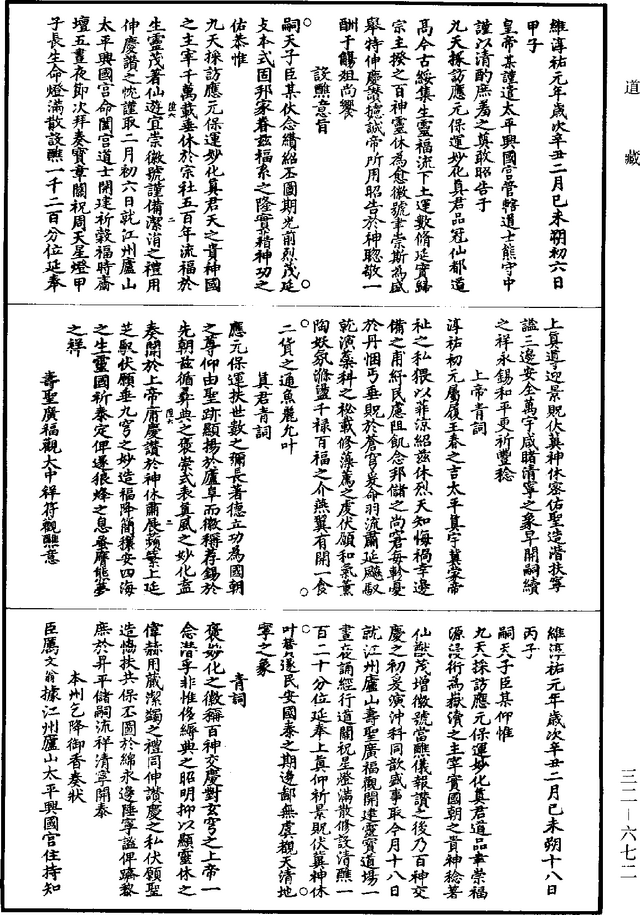 道藏
維淳祐元年歲次辛丑二月己未朔初六日
甲子
皇帝某謹遣太平興國宮管轄道士熊守中
謹以清酌庶羞之奠敢昭告于
九天採訪應元保運妙化真君品冠仙都道
高今古綏集生靈福流下土運數脩延實歸
宗主揆之百神靈休為愈徽號聿崇斯為盛
舉特伸慶讚攄誠帝所用昭告於神聰敬一
酬于觴俎尚饗
設醮意旨
嗣天子臣某伏念纘紹丕圖期光前烈茂延
支本式固邦家眷茲福系之隆實藉神功之
佑恭惟
九天採訪應元保運妙化真君天之貴神國
之主宰千萬載垂休於宗社五百年流福於
生靈茂著仙遊宜崇徽號謹備潔涓之禮用
伸慶讚之忱謹取二月初六日就江州廬山
太平興國宮命闔宮道士開建祈穀福時齋
壇五晝夜節次拜奏寶章關祝周天星燈甲
子長生命燈滿散設醮一千二百分位延奉
上真尊迎景貺伏冀神休密佑聖造潛扶寧
謐三邊安全萬宇咸睹清寧之象早開嗣續
之祥永錫和平更祈豐稔
上帝青詞
淳祐初元屬履王春之吉太平真宇冀蒙帝
祉之私猥以菲涼紹茲休烈天知悔禍幸邊
備之甫紓民慮阻飢念邦儲之尚窘每軫憂
於丹悃丐垂貺於蒼穹爰命羽流肅延飈馭
乾演藥科之秘載修藻薦之虔伏願和氣薰
陶妖氛滌盪千祿百福之介燕翼有開一食
二貨之通魚麗允叶
真君青詞
應元保運扶世數之彌長著德立功為國朝
之尊仰由聖跡顯揚於廬阜而徽稱荐錫於
先朝茲循彝典之褒崇式表真風之妙化盍
奏聞於上帝庸慶讚於神休肅展蘋蘩上延
芝馭伏願垂九穹之妙造福降簡穰安四海
之生靈國祈泰定俾遂狼烽之息蚤膺熊夢
之祥
壽聖廣福觀大中祥符觀醮意
維淳祐元年歲次辛丑二月己未朔十八日
丙子
嗣天子臣某仰惟
九天採訪應元保運妙化真君道品聿崇福
源浸衍為嶽瀆之主宰實國朝之貴神稔著
仙猷茂增徽號當醮儀報讚之後乃百神交
慶之初爰演沖科同歆盛事取今月十八日
就江州廬山壽聖廣福觀開建靈寶道場一
晝夜誦經行道關祝星燈滿散修設清醮一
百二十分位延奉上真仰祈景貺伏冀神休
叶贊遂民安國泰之期邊鄙無虞觀天清地
寧之象
青詞
褒妙化之徽稱百神交慶對玄穹之上帝一
念潛孚非惟侈縟典之昭明抑以顯靈休之
偉赫用蕆潔蠲之禮同伸讚慶之私伏願聖
造憍扶共保丕圖於綿永邊陲寧謐俾躋黎
庶於昇平儲嗣流祥清寧開泰
本州乞降御香奏狀
臣厲文翁據江州廬山太平興國宮住持知
三二－六七二